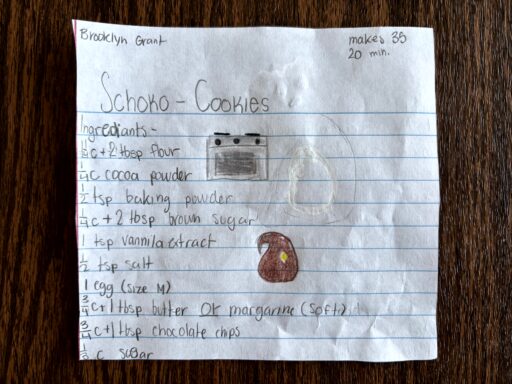 Brooklyn Grant
makes 35
20 min.
Schoko - Cookies
Ingrediants -
c + 2 tbsp flour
1/4 c cocoa powder
1/2 tsp baking powder
1/4 c + 2 tbsp brown sugar
1 tsp vannila extract
1/2 tsp salt
1 egg (size M)
3/4 c + 1 tbsp butter or margarine (soft)
3/4 c + 1 tbsp chocolate chips
c sugar